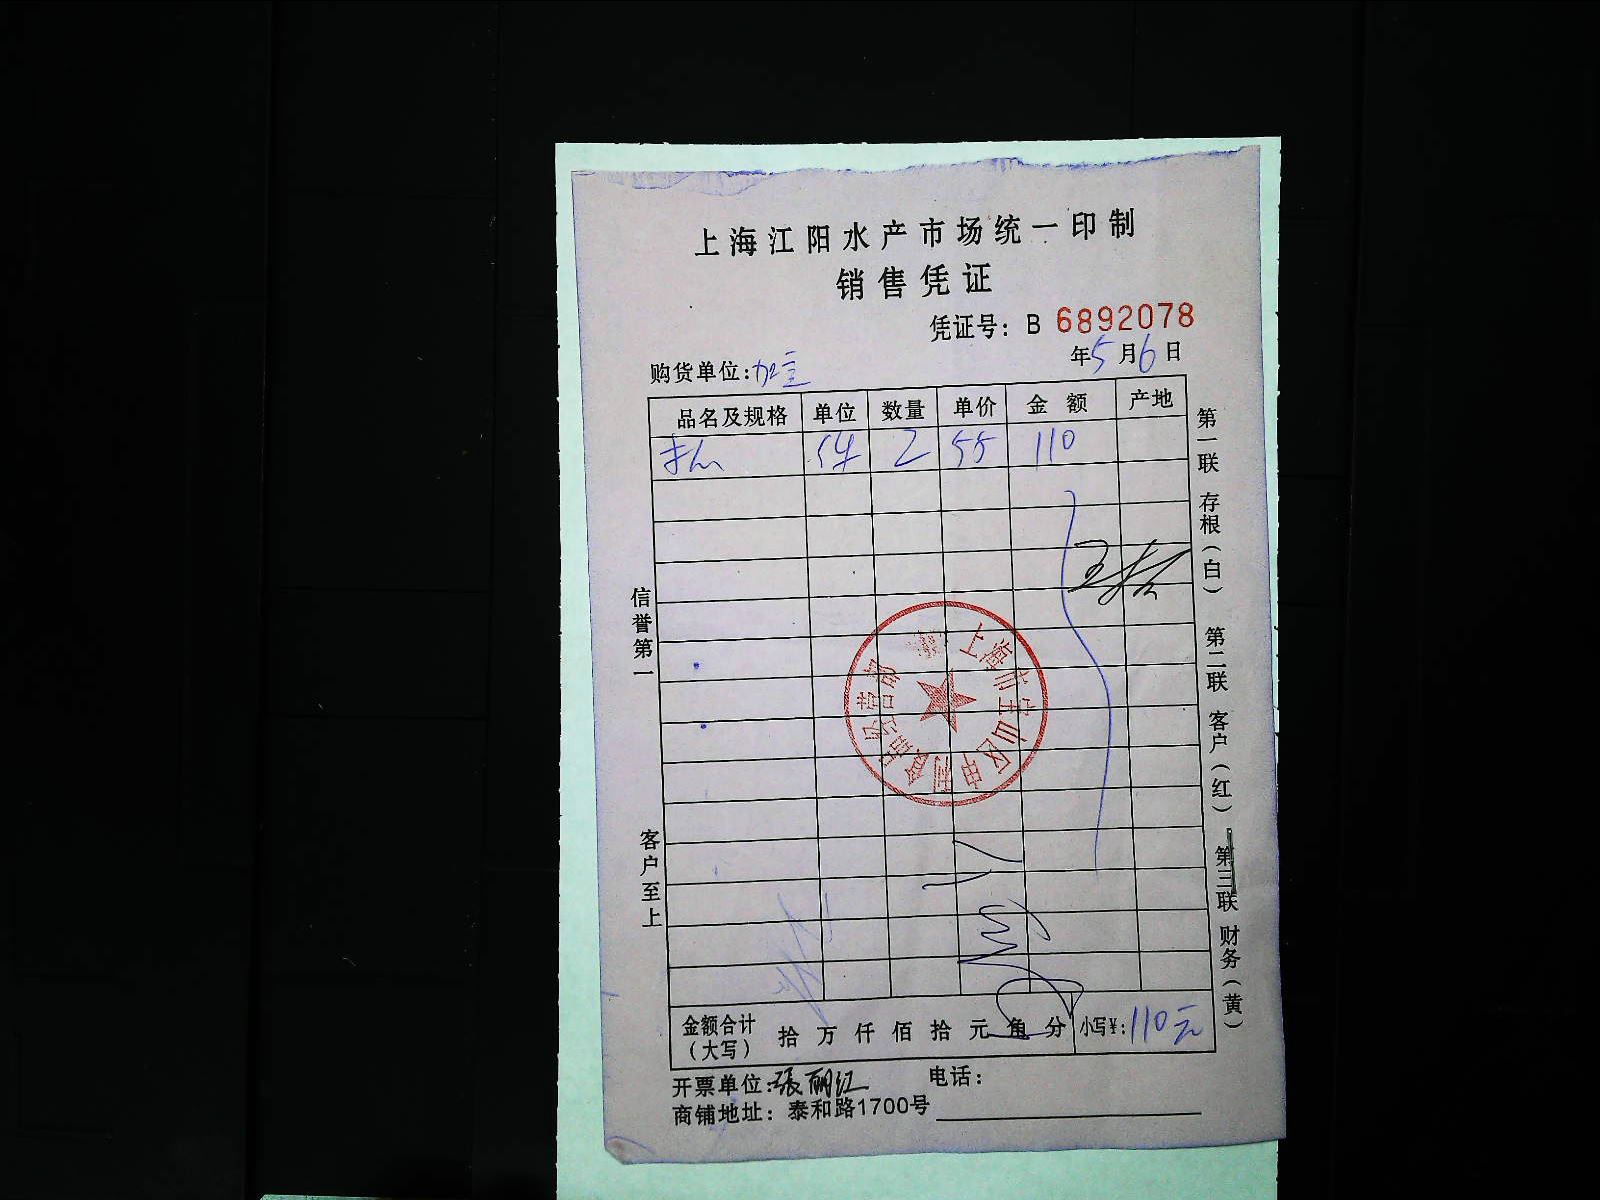 上海江阳水产市场统一印制
销售凭证
凭证号：B 6892078
年5月6日
购货单位：
品名及规格 单位 数量 单价 金额 产地
件 2 55 110
信誉第一
客户至上
第一联 存根（白） 第二联 客户（红） 第三联 财务（黄）
上海市宝山区申利食品经营部
金额合计（大写） 拾 万 仟 佰 拾 元 角 分 小写¥：110元
开票单位：張丽红 电话：
商铺地址：泰和路1700号